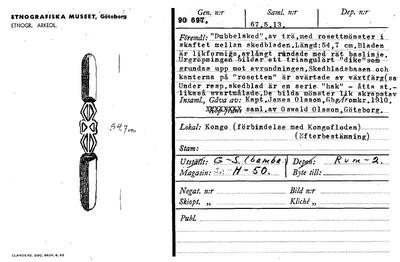 ETNOGRAFISKA MUSEET, Göteborg
ETNOGR. ARKEOL.
54,7 cm
Gen. nr: Saml. nr: Dep. nr:
90 697. 67.5.13.
Föremål: "Dubbelsked", av trä, med rosettmönster i
skaftet mellan skedbladen. Längd: 54,7 cm. Bladen
är likformiga, avlångt rundade med rät baslinje.
Urgröpningen bildar ett triangulärt "dike" som
grundas upp mot avrundningen. Skedbladsbasen och
kanterna på "rosetten" är svärtade av växtfärg (sa
Under resp. skedblad är en serie "hak" – åtta st.
likaså svartmålade. De bilda mönster lik
Insaml., Gåva av: Kapt. James Olsson, Gbg/framkr. 1910,
saml. av Oswald Olsson, Göteborg.
Lokal: Kongo (förbindelse med Kongofloden)
(Efterbestämning)
Stam:
Utställt: G-S. (bamba. Depon: Rum-2.
Magasin: H-50. Byte till:
Negat. n:r Bild n:r
Skiopt. n:r Kliché
Publ.